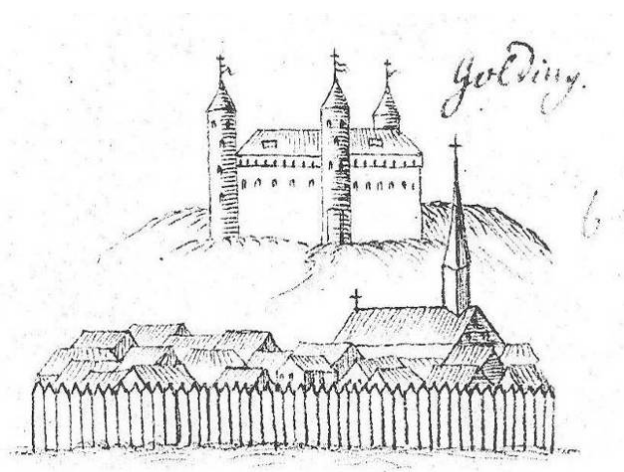 Golding.
6